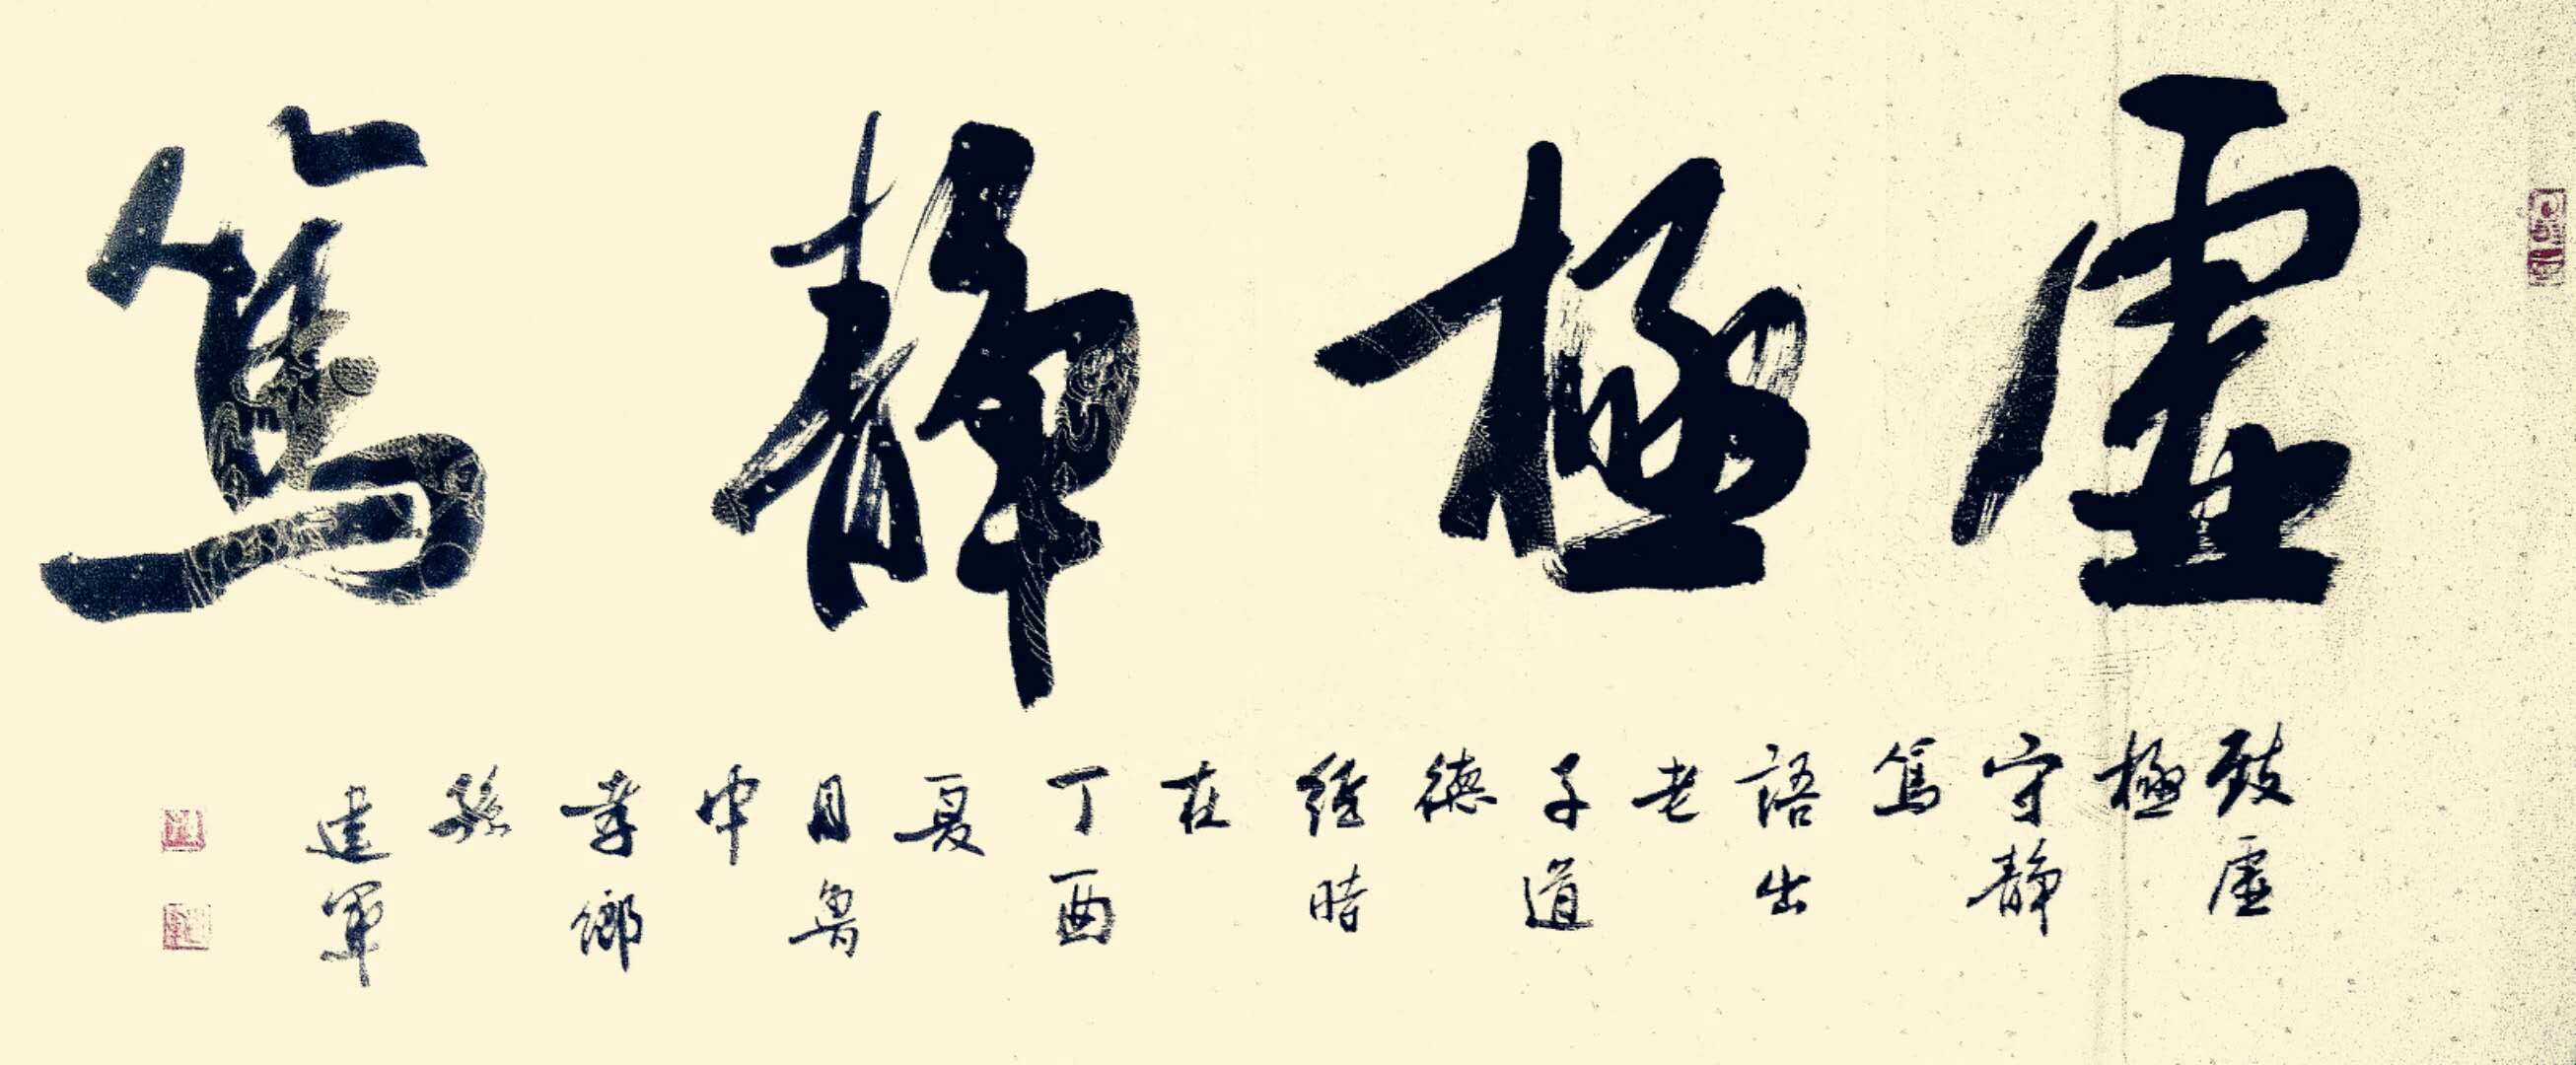 虛極靜篤
致虛
極
守靜
篤
語出
老
子道
德
經時
在
丁酉
夏
月魯
中
孝鄉
孫
建軍